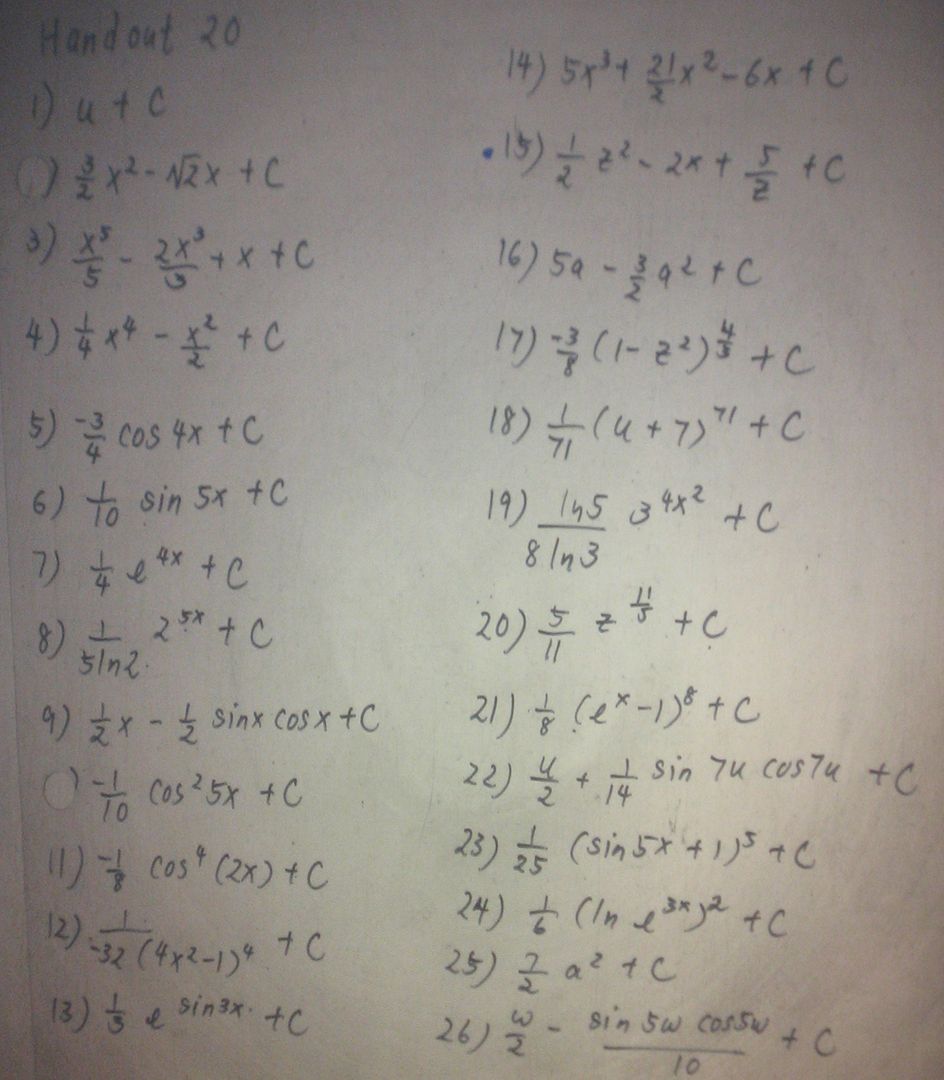 Handout 20
1) u + C
) 3/2 x² - √2x + C
3) x⁵/5 - 2x³/3 + x + C
4) 1/4 x⁴ - x²/2 + C
5) -3/4 cos 4x + C
6) 1/10 sin 5x + C
7) 1/4 e^4x + C
8) 1/(5ln2) 2^5x + C
9) 1/2 x - 1/2 sinx cosx + C
) -1/10 cos² 5x + C
11) -1/8 cos⁴ (2x) + C
12) 1/(-32 (4x²-1)⁴) + C
13) 1/3 e^sin3x + C
14) 5x³ + 21/2 x² - 6x + C
15) 1/2 z² - 2x + 5/z + C
16) 5a - 3/2 a² + C
17) -3/8 (1 - z²)^4/3 + C
18) 1/71 (u + 7)^71 + C
19) ln5/(8 ln3) 3^4x² + C
20) 5/11 z^11/5 + C
21) 1/8 (e^x - 1)⁸ + C
22) u/2 + 1/14 sin 7u cos7u + C
23) 1/25 (sin5x + 1)⁵ + C
24) 1/6 (ln e^3x)² + C
25) 7/2 a² + C
26) w/2 - (sin 5w cos5w)/10 + C